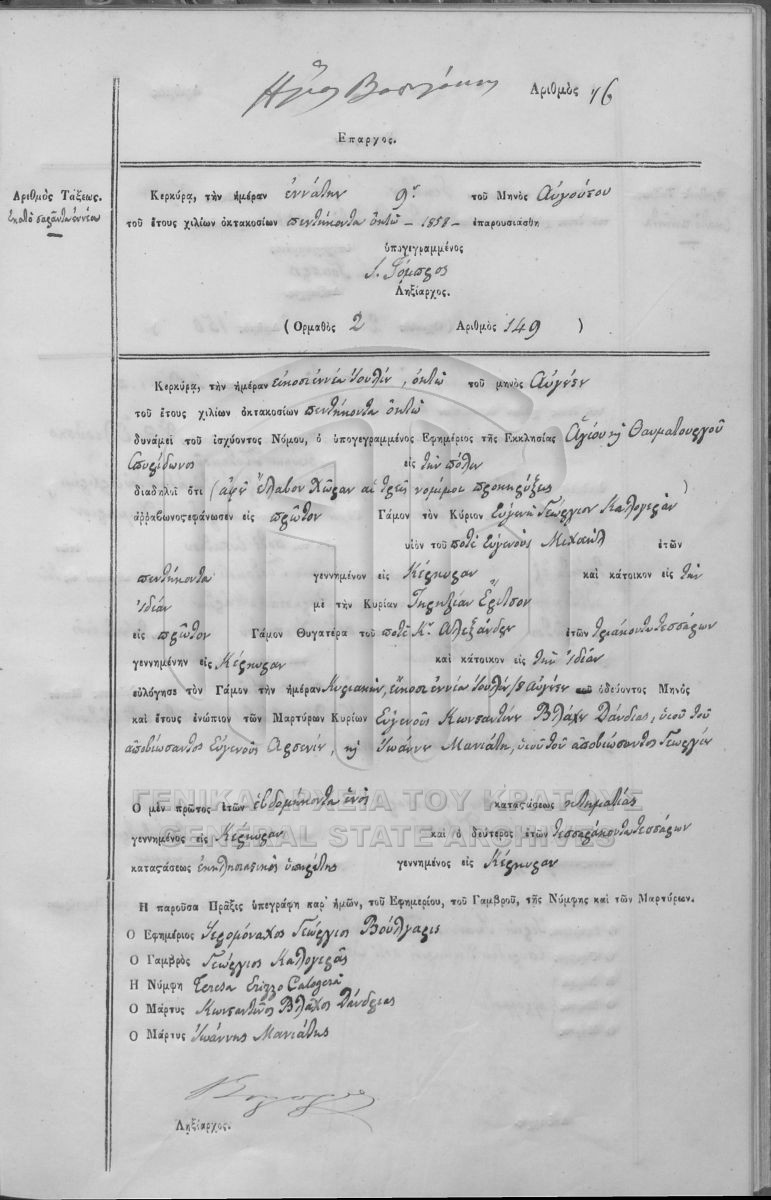 Ἀριθμὸς 76
Επαρχος.
Ἀριθμὸς Τάξεως.
ἑκατὸ σαράντα ἐννέα
Κερκύρᾳ, τὴν ἡμέραν ἐννάτην 9ην τοῦ Μηνὸς Αὐγούστου
τοῦ ἔτους χιλίων ὀκτακοσίων πεντήκοντα ὀκτὼ – 1858 – ἐπαρουσιάσθη
ὑπογεγραμμένος
Ληξίαρχος.
(Ορμαθὸς 2 Ἀριθμὸς 149 )
Κερκύρᾳ, τὴν ἡμέραν εἰκοσιεννέα Ἰουλίου, ὀκτὼ τοῦ μηνὸς Αὐγούστου
τοῦ ἔτους χιλίων ὀκτακοσίων πεντήκοντα ὀκτὼ
δυνάμει τοῦ ἰσχύοντος Νόμου, ὁ ὑπογεγραμμένος Εφημέριος τῆς Εκκλησίας Ἁγίου καὶ Θαυματουργοῦ
Σπυρίδωνος εἰς τὴν πόλιν
διαδηλοῖ ὅτι (ἀφοῦ ἔλαβον χῶραν αἱ τρεῖς νομίμοι προκηρύξεις )
ἀρραβωνος εφάνωσεν εἰς πρῶτον Γάμον τὸν Κύριον Εὐγενῆ Γεώργιον Καλογερᾶν
υἱὸν τοῦ ποτὲ Εὐγενοῦς Μιχαὴλ ἐτῶν
πεντήκοντα γεννημένον εἰς Κέρκυραν καὶ κάτοικον εἰς τὴν
ἰδίαν μὲ τὴν Κυρίαν Τηρηζίαν Ἔριτσον
εἰς πρῶτον Γάμον Θυγατέρα τοῦ ποτὲ Κου Ἀλεξάνδρου ἐτῶν τριάκοντα τεσσάρων
γεννημένην εἰς Κέρκυραν καὶ κάτοικον εἰς τὴν ἰδίαν
εὐλόγησε τὸν Γάμον τὴν ἡμέραν Κυριακὴν, εἴκοσι ἐννέα Ἰουλίου/8 Αὐγούστου τοῦ ὁδεύοντος Μηνὸς
καὶ ἔτους ἐνώπιον τῶν Μαρτύρων Κυρίων Εὐγενοῦς Κωνσταντίνου Βλάχου Δάνδριας, υἱοῦ τοῦ
ἀποβιώσαντος Εὐγενοῦς Ἀρσενίου, καὶ Ἰωάννου Μανιάτη, υἱοῦ τοῦ ἀποβιώσαντος Γεωργίου
Ο μὲν πρῶτος ἐτῶν ἑβδομήκοντα ἑνὸς καταςάσεως κτηματίας
γεννημένος εἰς Κέρκυραν καὶ ὁ δεύτερος ἐτῶν τεσσαράκοντα τεσσάρων
καταςάσεως ἐκκλησιαστικὸς ὑπηρέτης γεννημένος εἰς Κέρκυραν
Η παροῦσα Πρᾶξις ὑπεγράφη παρ' ἡμῶν, τοῦ Εφημερίου, τοῦ Γαμβροῦ, τῆς Νύμφης καὶ τῶν Μαρτύρων.
Ο Εφημέριος Ἱερομόναχος Γεώργιος Βούλγαρις
Ο Γαμβρὸς Γεώργιος Καλογερᾶς
Η Νύμφη Teresa Erizzo Calogerà
Ο Μάρτυς Κωνσταντῖνος Βλάχος Δάνδριας
Ο Μάρτυς Ἰωάννης Μανιάτης
Ληξίαρχος.
ΓΕΝΙΚΑ ΑΡΧΕΙΑ ΤΟΥ ΚΡΑΤΟΥΣ
GENERAL STATE ARCHIVES